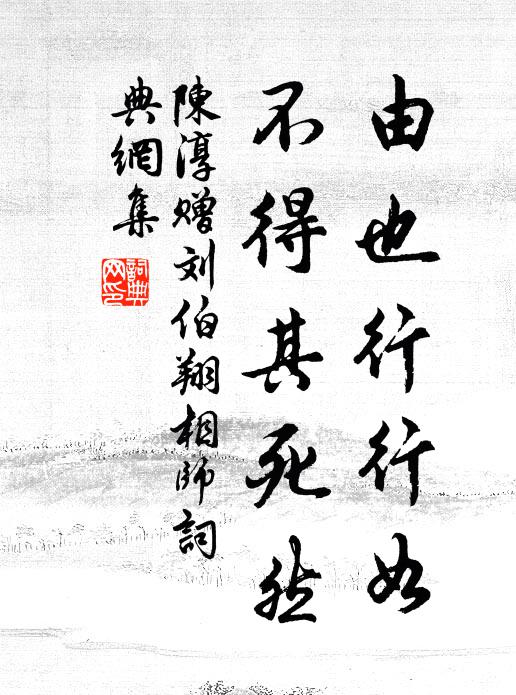 由也行行如
不得其死然
陳淳赠刘伯翔相師詞
典網集
詞典
网印